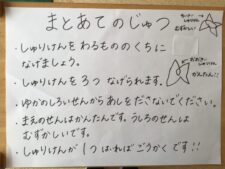 まとあてのじゅつ
ちいさい
しゅりけん
むずかしい
・しゅりけんをわるもののくちに
なげましょう。
おおきい
しゅりけん
かんたん!!
・しゅりけんを3つ なげられます。
・ゆかのしろいせんからあしをださないでください。
・まえのせんはかんたんです。うしろのせんは
むずかしいです。
・しゅりけんが1つはいればごうかくです!!